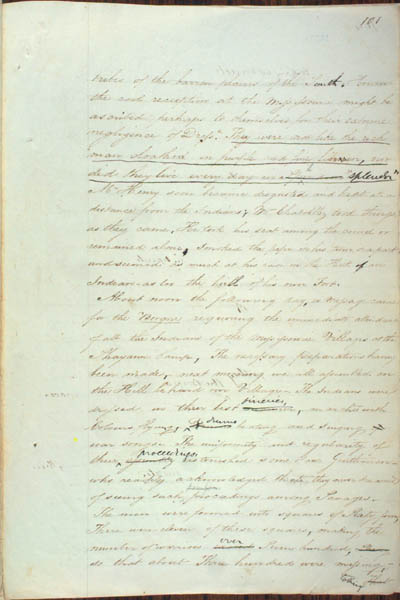 101
tribes of the barren plains of the South. However
the cool reception at the Missouri might be
ascribed perhaps to themselves for their extreme
negligence of Dress. They were not like the rich
man cloathed in purple and fine linen, nor
did they live every day in splendor
Mr Henry soon became disgusted and kept at a
distance from the Indians; Mr Chaboillez took things
as they came, He took his seat among the crowd or
remained alone, smoked the pipe in his turn or apart
and seemed as much at his ease in the Tent of an
Indian as by the hearth of his own Fort.
About noon the following day, a message came
for the Borgne requiring the immediate attendance
of all the Indians of the Missouri Villages at the
Shayenne Camp, The necessary preparations having
been made, next morning we all assembled on
the Hill behind our Village. The Indians were
dressed in their best fineries, on and with
Colours flying, drums beating and singing
war songs. The uniformity and regularity of
their proceedings astonished some of our Gentlemen
who readily acknowledged that they never dreamed
of seeing such proceedings among Savages.
The men were formed into squares of Sixty
There were eleven of these squares, making the
number of warriors over Seven hundred,
so that about Three hundred were missing,